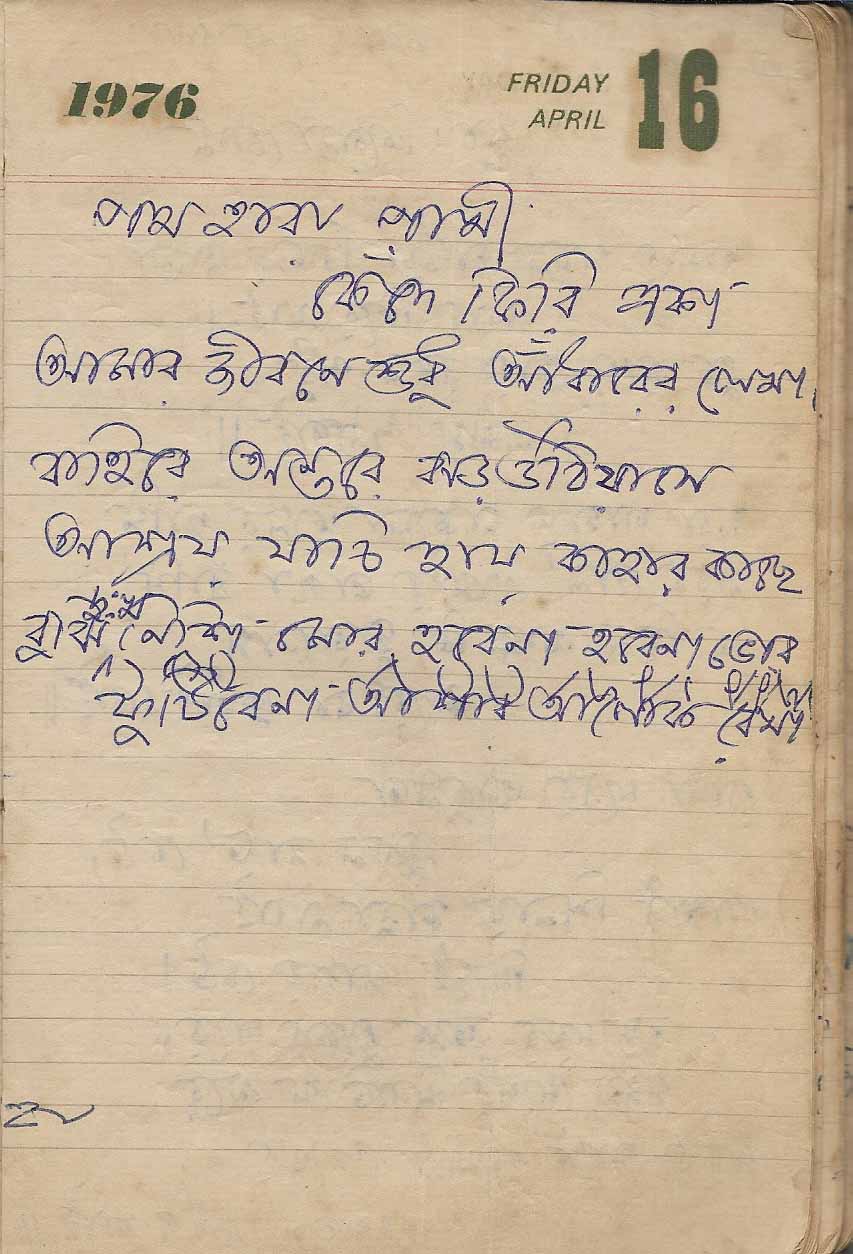 1976
FRIDAY
APRIL
16
পথ হারা পাখী
কেঁদে ফিরি একা
আমার জীবনে শুধু আঁধারের লেখা
বাহিরে অন্তরে ঝড় উঠিয়াছে
আশ্রয় যাচি হায় কাহার কাছে
দুঃখ
বুঝি নিশি মোর হবেনা হবেনা ভোর
ফুটিবেনা আশার আলোক রেখা